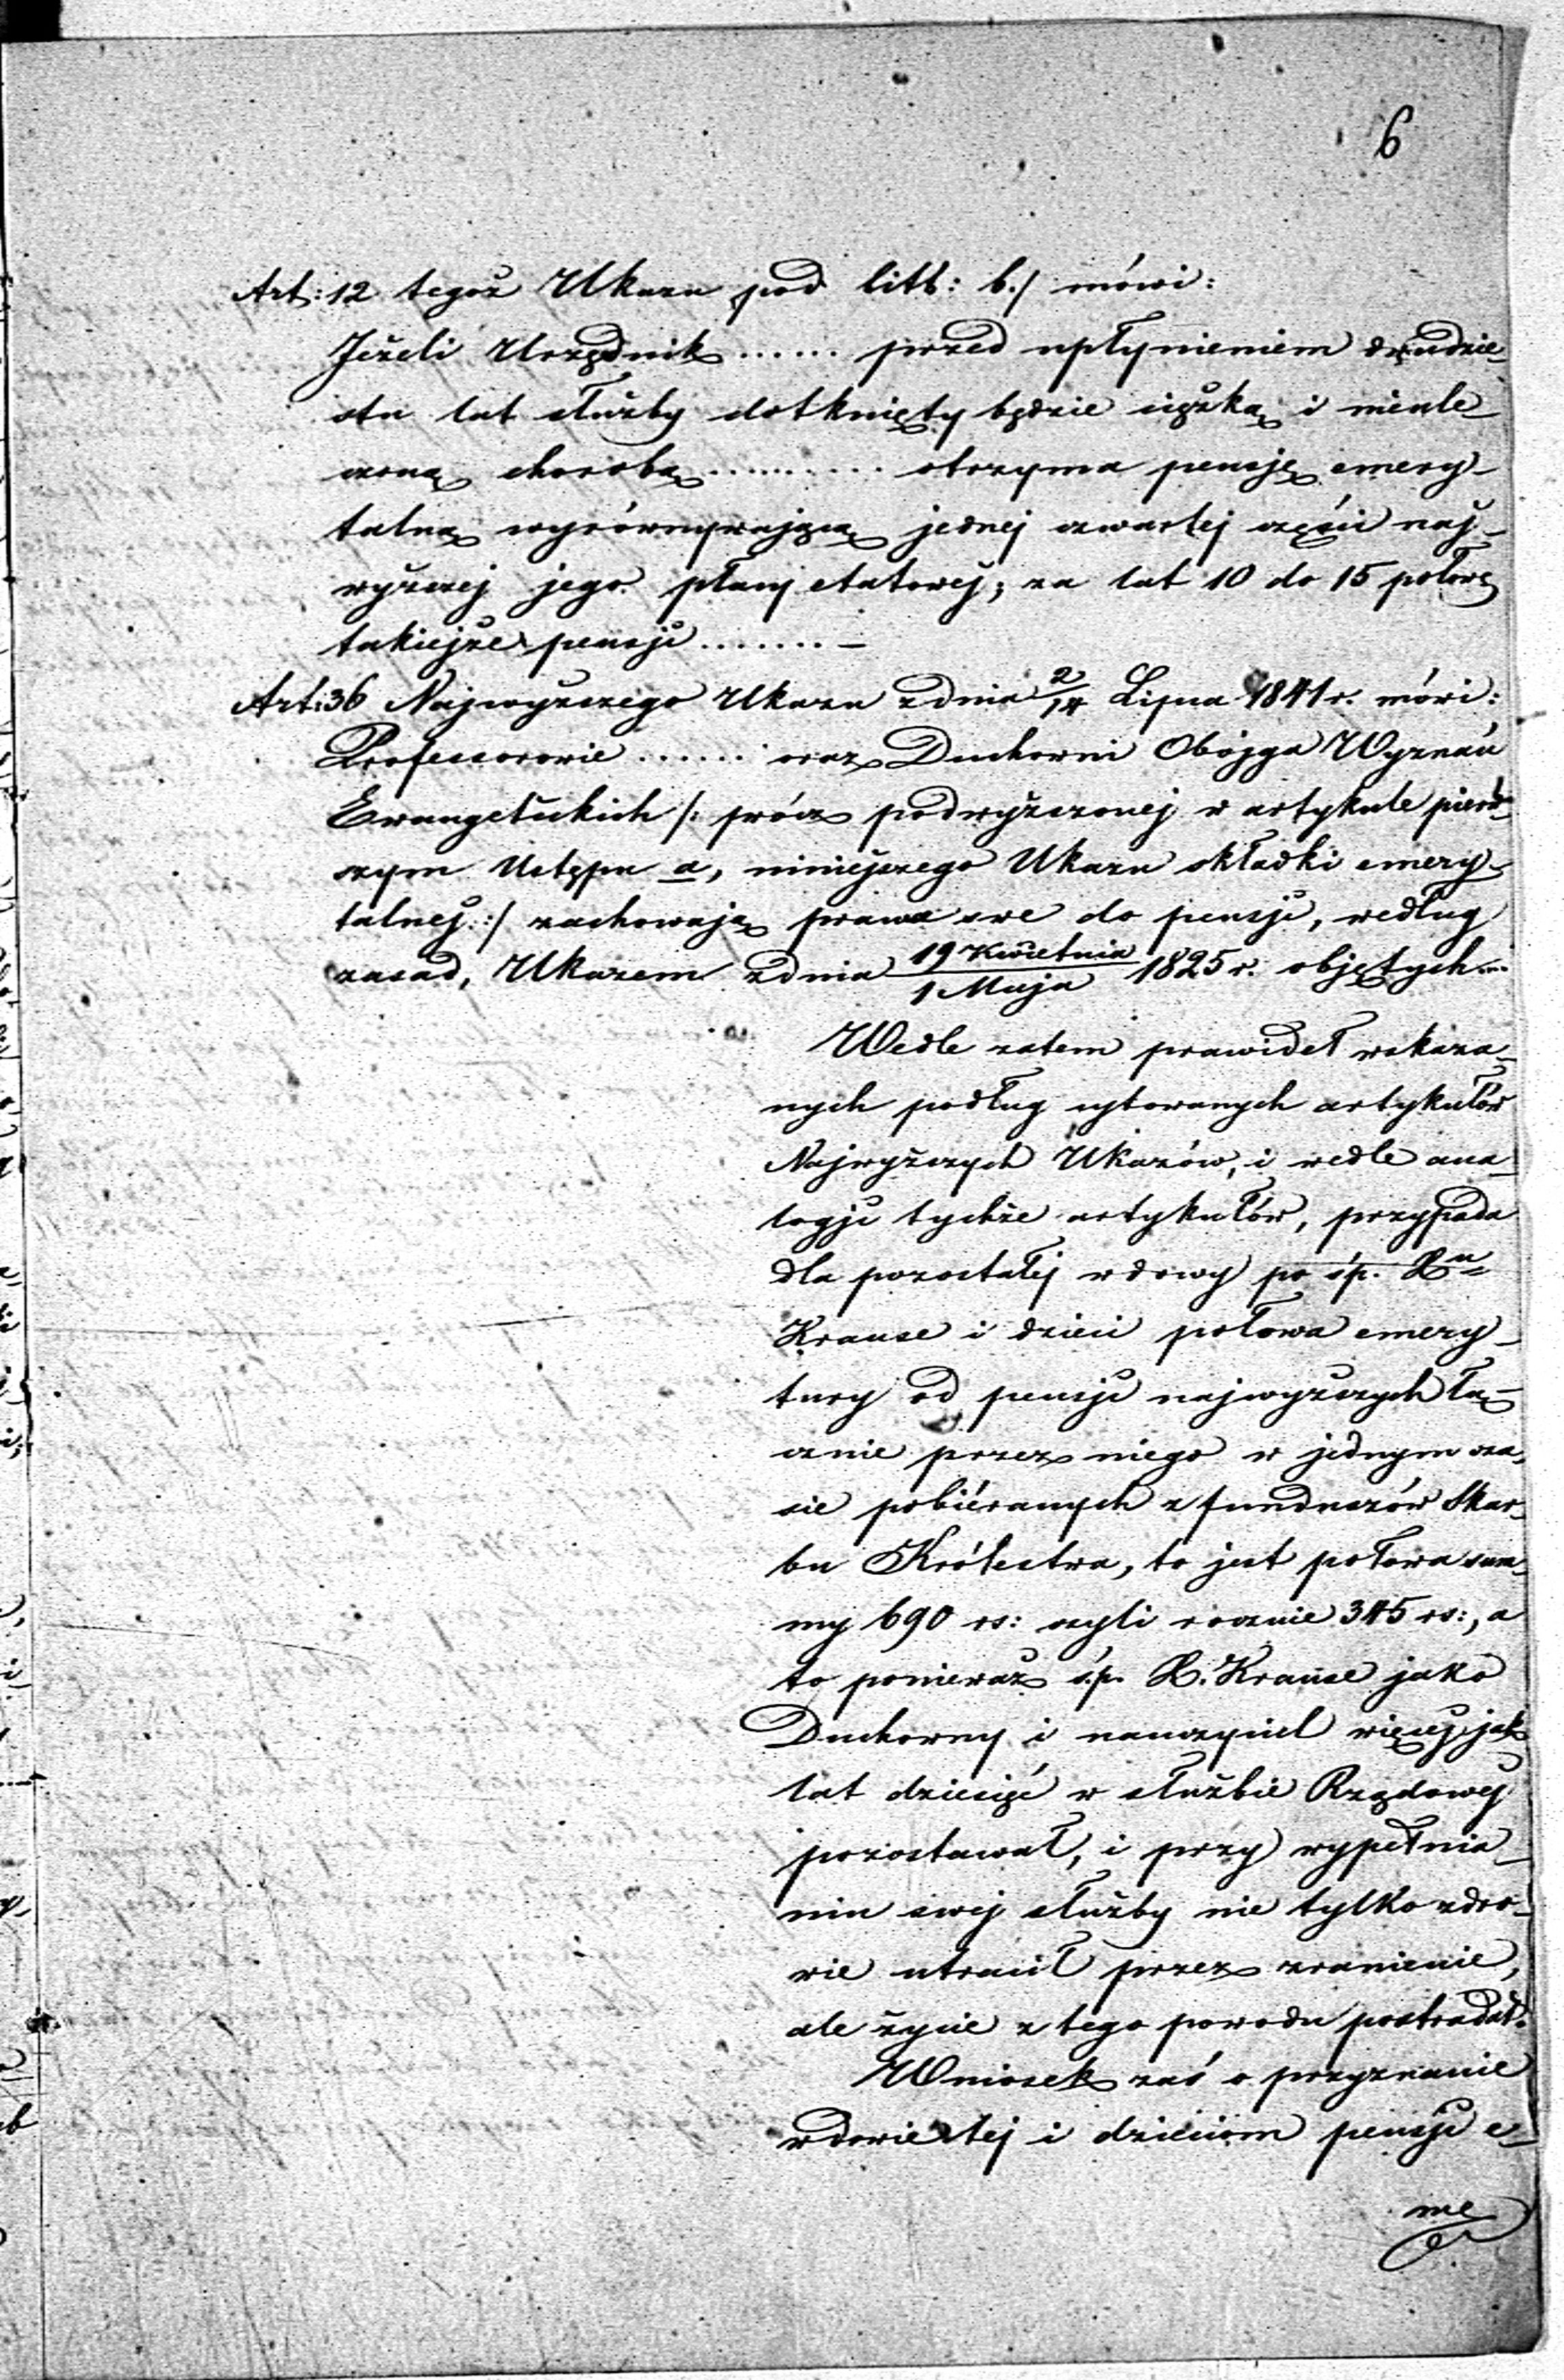 6
Art: 12 tegoż Ukazu pod litt: b./ mówi:
Jeżeli Urzędnik ...... przed upłynieniem dwudzie-
stu lat służby dotknięty będzie ciężką i nieule-
czoną chorobą .......... otrzyma pensję emery-
talną wyrównywającą jednej czwartej części naj-
wyższej jego płacy etatowej; za lat 10 do 15 połowę
takiejże pensji ....... –
Art: 36 Najwyższego Ukazu z dnia 2/14 Lipca 1841 r. mówi:
Professorowie ...... oraz Duchowni Obojga Wyznań
Ewangelickich /: prócz podwyższonej w artykule pierw-
szym Ustępu a, niniejszego Ukazu składki emery-
talnej :/ zachowają prawa swe do pensji, według
zasad, Ukazem z dnia 19 Kwietnia/1 Maja 1825 r. objętych...
Wedle zatem prawideł wskaza-
nych podług cytowanych artykułów
Najwyższych Ukazów, i wedle ana-
logji tychże artykułów, przypada
dla pozostałej wdowy po śp. Xu
Krause i dzieci połowa emery-
tury od pensji najwyższych łą-
cznie przez niego w jednym cza-
sie pobiéranych z funduszów Skar-
bu Królestwa, to jest połowa sum-
my 690 rs: czyli rocznie 345 rs:, a
to ponieważ śp. X. Krause jako
Duchowny i nauczyciel więcej jak
lat dziesięć w służbie Rządowej
pozostawał, i przy wypełnia-
niu swej służby nie tylko zdro-
wie utracił przez zranienie,
ale życie z tego powodu postradał.
Wniosek zaś o przyznanie
wdowie tej i dzieciom pensji e-
me